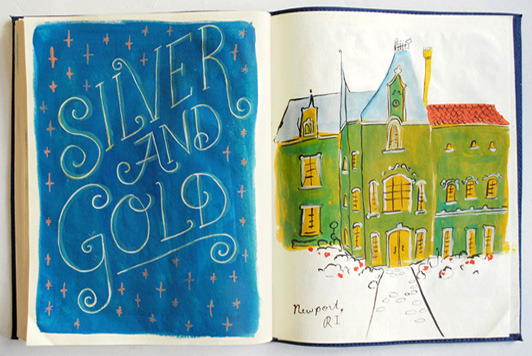 SILVER
AND
GOLD
Newport,
R.I.